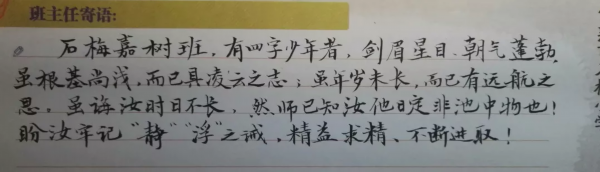 班主任寄语:
石梅嘉树班,有四字少年者,剑眉星目、朝气蓬勃
虽根基尚浅,而已具凌云之志;虽年岁未长,而已有远航之
思。虽诲汝时日不长,然师已知汝他日定非池中物也!
盼汝牢记“静”“浮”之诫,精益求精、不断进取!